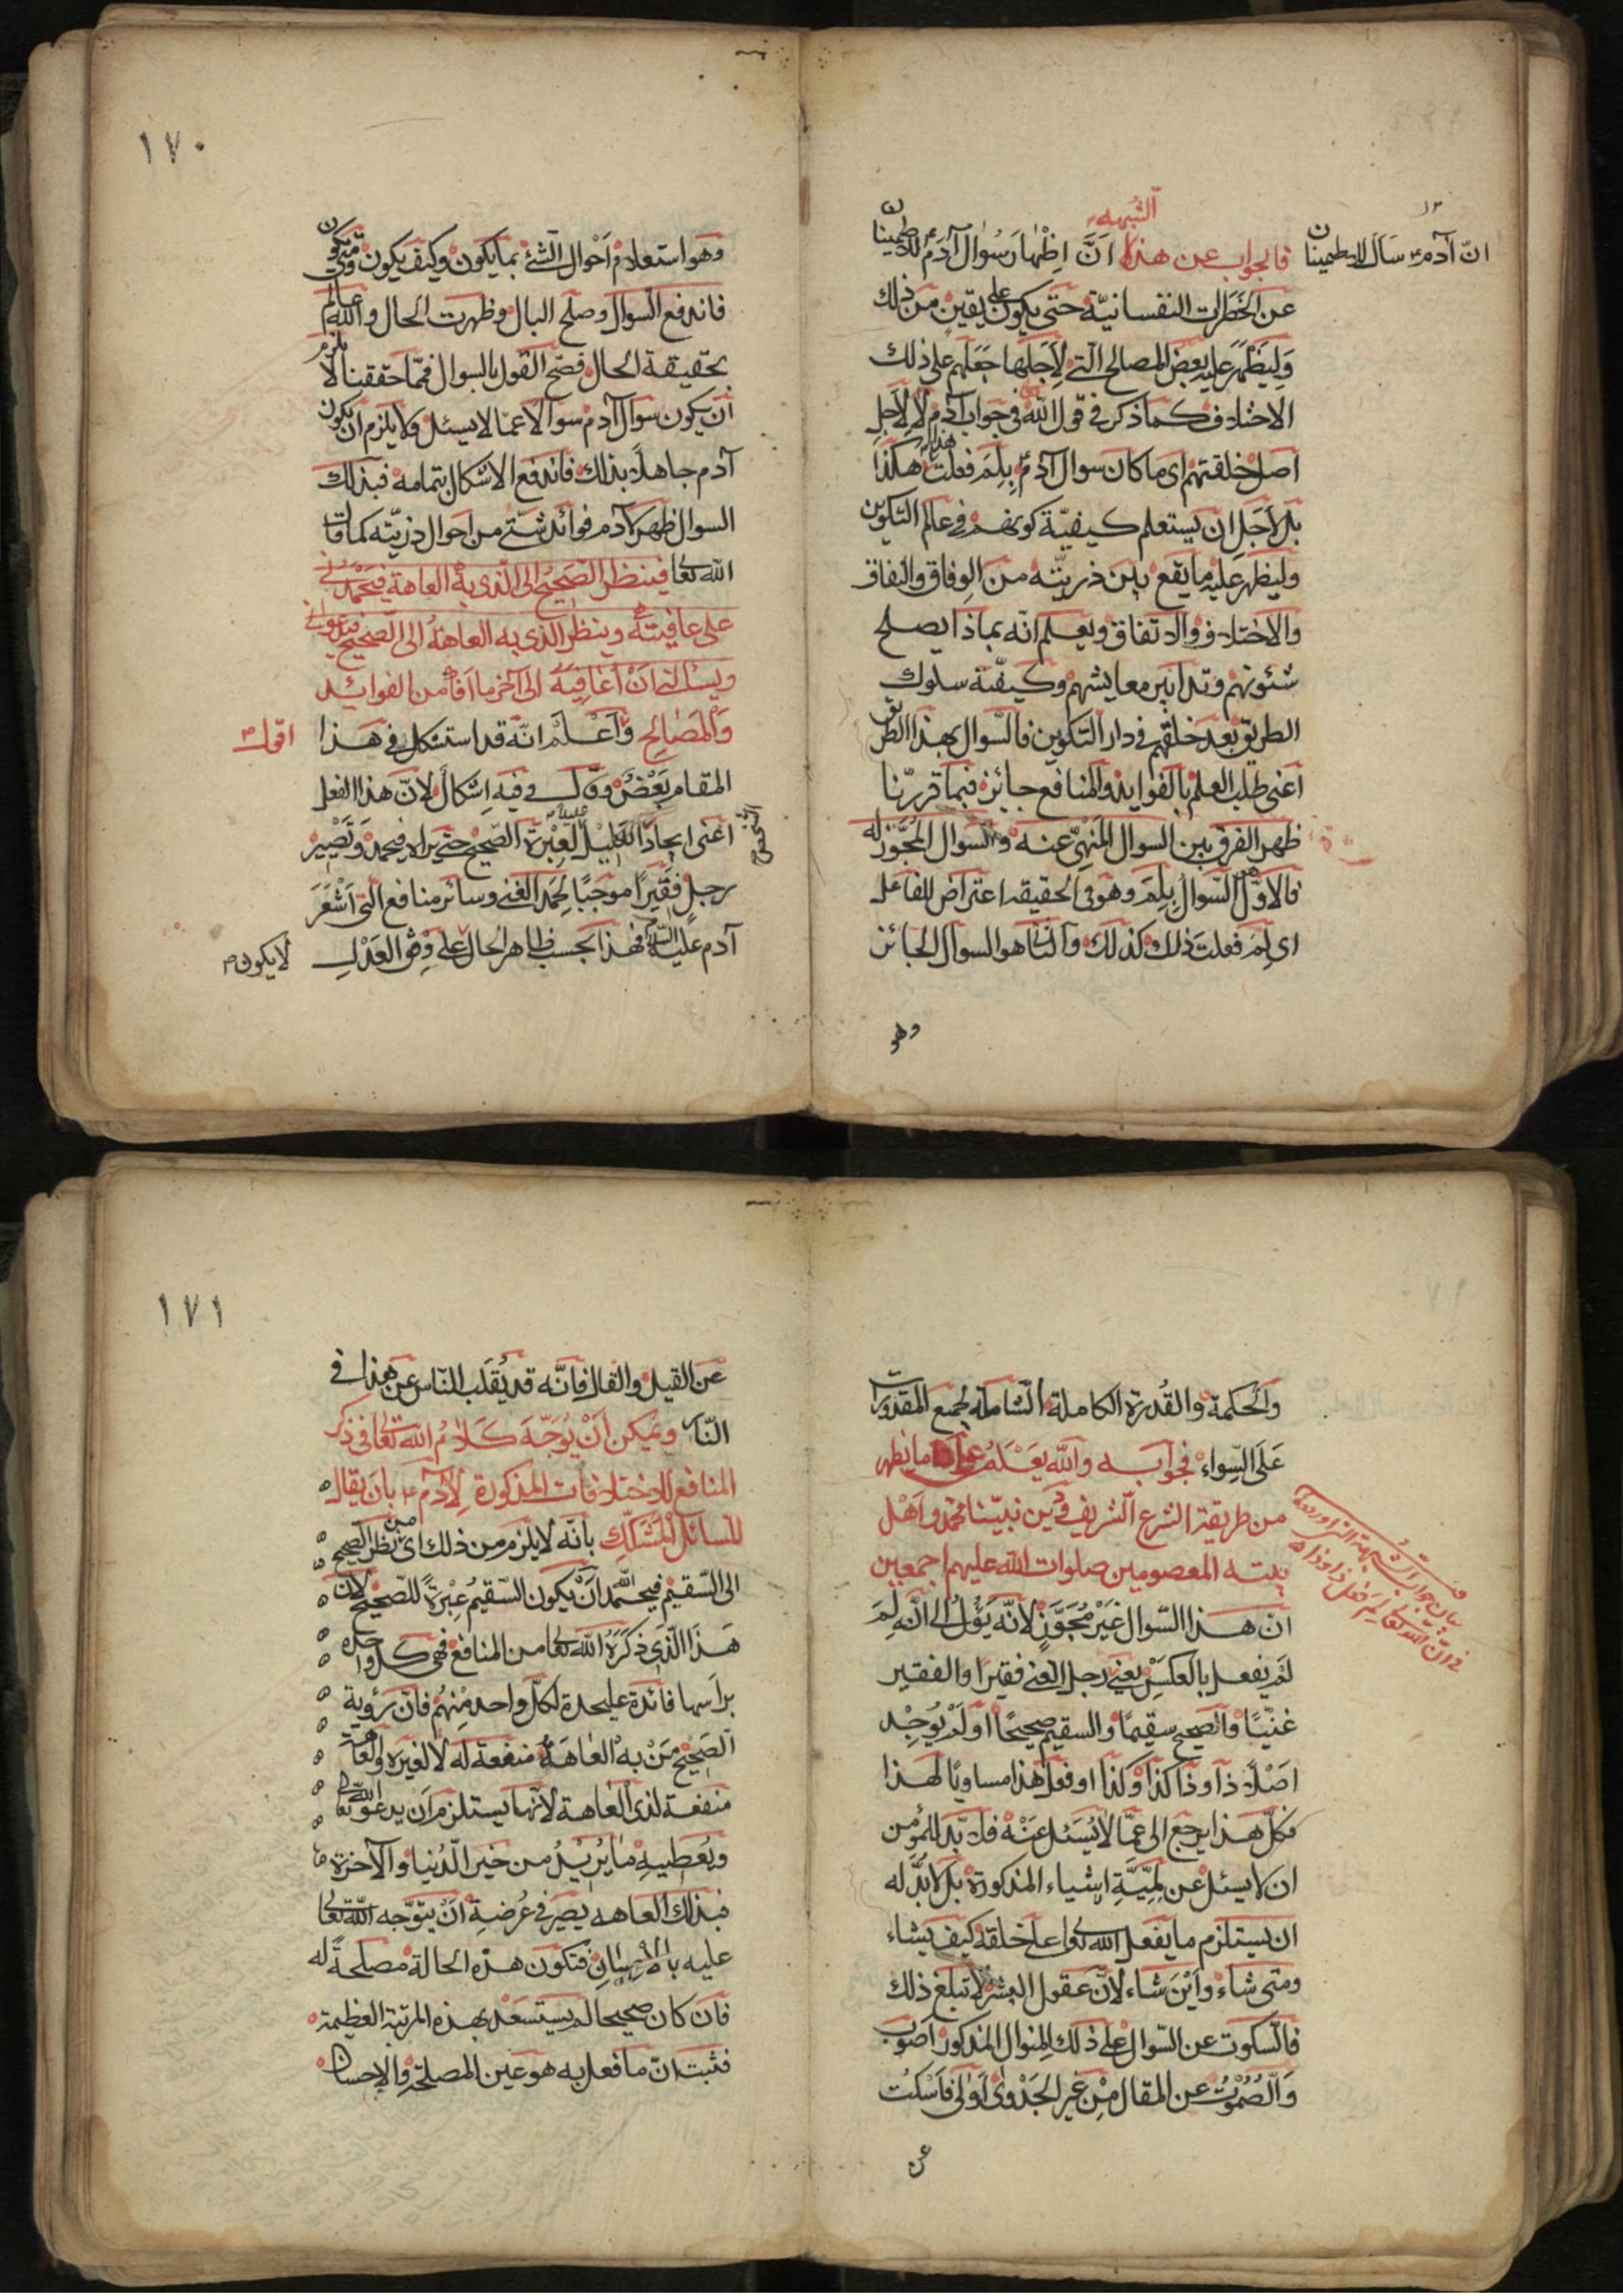 الشبهة
فالجواب عن هذا انَّ اِظْهارَ سُوال آدَم للاطمينان
انّ آدم سَاَلَ للاطمينان
عن الخَطَرات النفسانيّة حتى يكون على يقين من ذلك
وَلِيَظْهَرَ عليه بعض المصالح الّتى لِاَجلها جَعَلَهم على ذلك
الاختلاف كما ذكر فى قول اللّه فى جواب آدم لا لِاَجلِ
اصل خلقتهم اى ما كان سوال آدم بِلِمَ فعلت هذا هكذا
بل لاَجَلِ ان يستعلم كيفيّة كونهم فى عالم التكوين
وليظهر عليه ما يقع بين ذريّته من الوِفاق والنفاق
والاختلاف والاتفاق ويعلم انّه بماذا يصلح
شئونهم وتدابير معايشهم وكيفيّة سلوك
الطريق بعد خلقهم فى دار التكوين فالسّوال بهذا الطريق
اعنى طلب العلم بالفوايد والمنافع جايزة فبما قررّنا
ظهر الفرق بين السوال المَنهىّ عنه والسوال المُجَّوز له
فالاوّل السّوال بِلِمَ وهو فى الحقيقه اعتراض للفاعل
اى لِمَ فعلت ذلك كذلك والثانى هو السوال الجائز
وهو
١٧٠
وهو استعلام اَحْوال الشئ بما يكون وكيف يكون ومتى يكون
فاندفع السوال وصلح البال وظهرت الحال واللّه عالم
بحقيقة الحال فصّح القول بالسوال فممّا حققنا لا يلزم
اَن يكون سوال آدم سوالاً عمّا لا يسئل ولا يلزم ان يكون
آدم جاهلاً بذلك فاندفع الاشكال بتمامه فبذلك
السوال ظهر لآدم فوائد شتّى من احوال ذريّته كما قال
اللّه تعالى فينظر الصَحيحُ الى الّذى به العاهة فيَحْمَدُنى
على عافيته وينظر الذى به العاهةُ الى الصّحيح فيدعونى
ويسئلنى اَنْ اُعافِيَهُ الى آخر ما اَفادَ من الفوائد
وَالمَصٰالِح وَاَعْلَمْ انّه قد استشكل فى هَذا
اقول
المقام بَعْضٌ وقال وفيه اِشكالٌ لانّ هذا الفعل
اعنى ايجادَ العَليْل لِعِبْرَة الصّحيح حتى يراه فيحمد وَتَصْيير
رجلٍ فَقيراً موجباً لِحَمدِ الغنى وسائر منافع التى اَشْعَرَ
آدم عليه السّلام فهذا بحسب ظاهر الحال على وفق العَدْلِ
لا يكون
والحكمة والقُدرة الكاملة الشاملة لجميع المقدورات
عَلَى السِّواء فجوابه واللّه يعلم على ما يظهر
من طريقة الشرع الشريف فى دين نبيّنا محمّد واَهْل
بيته المعصومين صلوات اللّه عليهم اجمعين
انّ هذا السّوال غَيْرُ مُجَوَّزٍ لانّه يَؤلُ الى انّه لِمَ
لَمْ يفعل بالعكسِ يعنى رجل الغنى فقيراً والفقير
غنيّاً والصّحيح سقيماً والسقيم صحيحاً او لَمْ يُوجِد
اَصْلاً ذا وذا كذا وكذا او فعل هذا مساوياً لهذا
فكلّ هذا يرجع الى عمّا لا يُسْئَل عَنْهُ فلا بدّ للمؤمن
ان لا يسئل عن لِمِيَّةِ اشياء المذكورة بل لا بدّ له
ان يستلزم ما يفعل اللّه تعالى على خلقه كيف يشاء
ومتى شاء واَيْنَ شاء لانّ عقول البشر لا تبلغ ذلك
فالسّكوت عن السّوال على ذلك المِنوال المذكور اَصوب
وَالصُّمُوْتُ عن المقال مِنْ غير الجَدْوى اَولى فَاسْكُت
عن
١٧١
عن القيل والقال فاِنَّه قد يُقلَب الناس عن هذا فى
النّار ويمكن اَنْ يُوَجَّهَ كَلاٰمُ اللّه تعالى فى ذكر
المنافع للاختلافات المذكورة لِآدم ع بان يقال
للسّائل المُشَكِّك بانّه لا يلزم من ذلك اى من نظر الصّحيح
الى السّقيم فيحمد اللّه اَنْ يكون السّقيمُ عِبْرَةً للصّحيح لانّ
هَذا الّذى ذكَرَهُ اللّه تعالى من المنافع فهى كل واحدة
برَاسها فائدة عليحدة لكلّ واحدٍ مِنْهم فانّ رؤية
الصَّحيْح مَنْ به العٰاهَةُ منفعة له لا لغيره والعاهة
منفعة لذى العٰاهة لاَنّها يستلزم اَن يدعو اللّه تعالى
ويُعطيهِ ما يُريْدُ من خير الدُّنيا والآخرة
فبذلك العاهه يصير فى عُرضةِ اَنْ يتوّجه اللّه تعالى
عليه بالاِحْسٰانِ فتكون هذه الحالة مصلحةً له
فان كان صحيحا لم يستسعد بهذه المرتبة العظيمة
فثبت انّ ما فعل به هو عين المصلحة والاِحسان